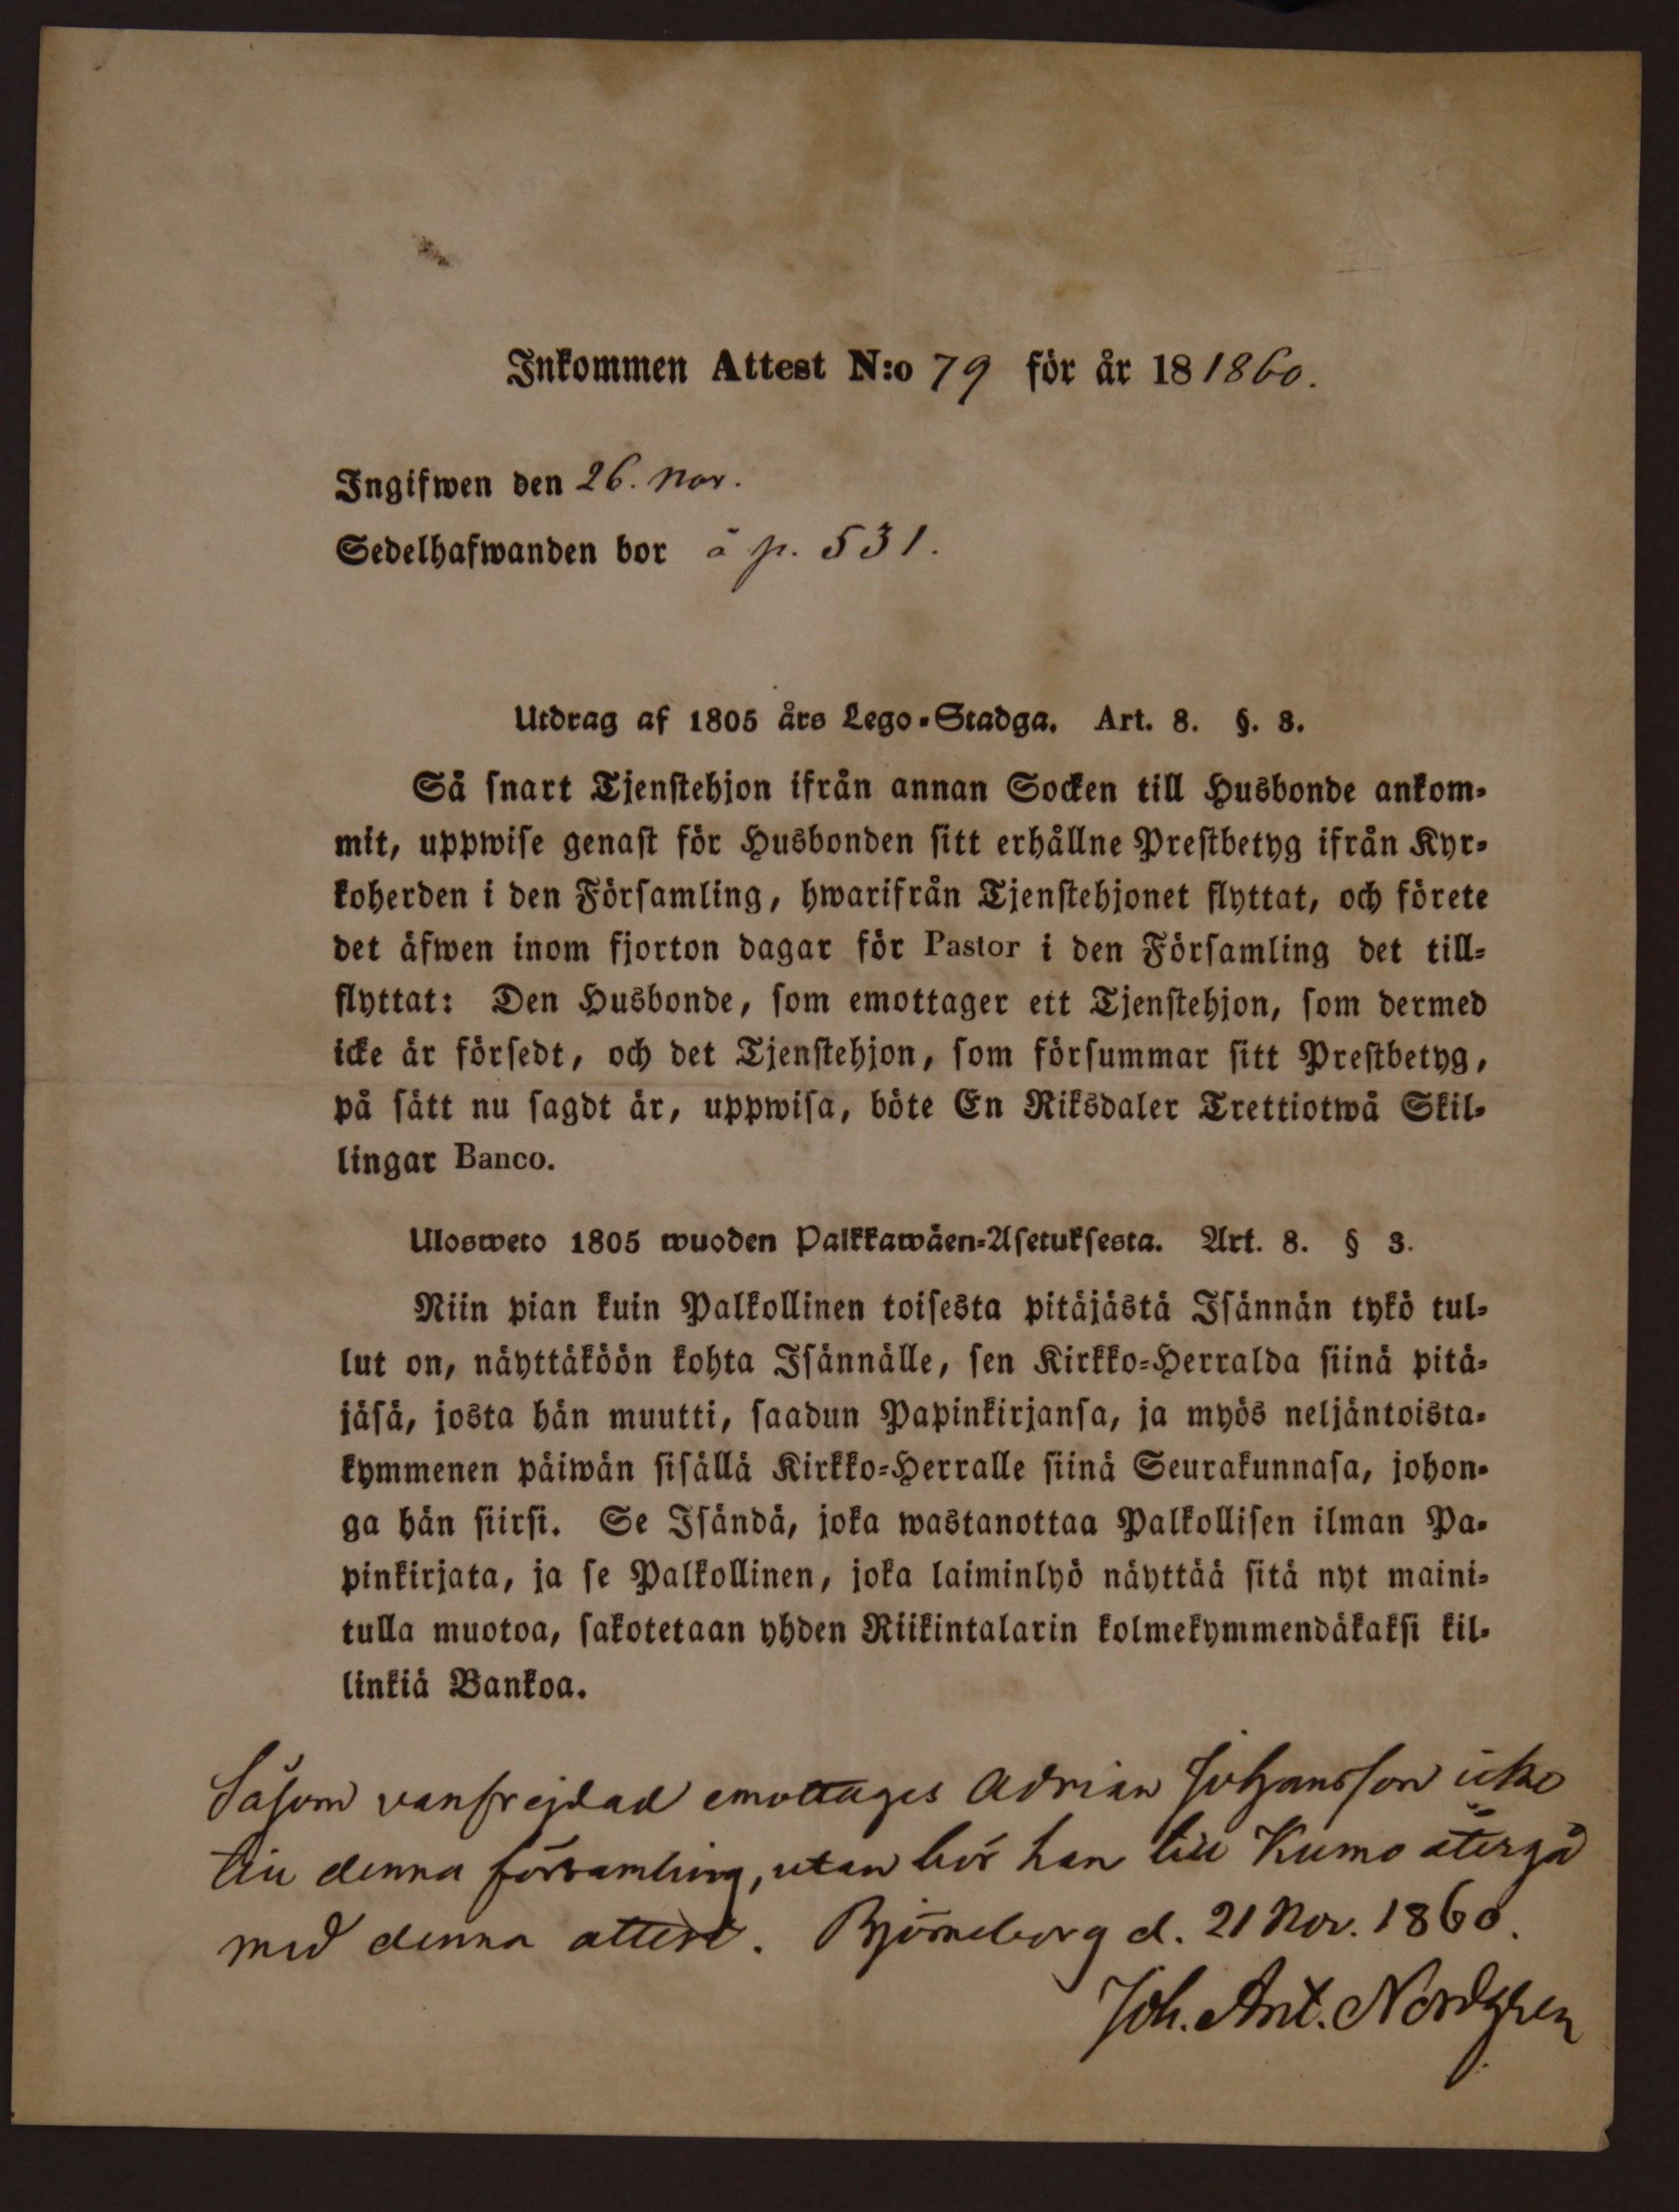 Inkommen Attest N:o 79 för år 18 1860.
Ingifwen den 26. Nov.
Sedelhafwanden bor å p. 531.
Utdrag af 1805 års Lego-Stadga. Art. 8. §. 3.
Så snart Tjenstehjon ifrån annan Socken till Husbonde ankom-
mit, uppwise genast för Husbonden sitt erhållne Prestbetyg ifrån Kyr-
koherden i den Församling, hwarifrån Tjenstehjonet flyttat, och förete
det äfwen inom fjorton dagar för Pastor i den Församling det till-
flyttat: Den Husbonde, som emottager ett Tjenstehjon, som dermed
icke är försedt, och det Tjenstehjon, som försummar sitt Prestbetyg,
på sätt nu sagdt är, uppwisa, böte En Riksdaler Trettiotwå Skil-
lingar Banco.
Ulosweto 1805 wuoden Palkkawäen-Asetuksesta. Art. 8. § 3.
Niin pian kuin Palkollinen toisesta pitäjästä Isännän tykö tul-
lut on, näyttäköön kohta Isännälle, sen Kirkko-Herralda siinä pitä-
jäsä, josta hän muutti, saadun Papinkirjansa, ja myös neljäntoista-
kymmenen päiwän sisällä Kirkko-Herralle siinä Seurakunnasa, johon-
ga hän siirsi. Se Isändä, joka wastanottaa Palkollisen ilman Pa-
pinkirjata, ja se Palkollinen, joka laiminlyö näyttää sitä nyt maini-
tulla muotoa, sakotetaan yhden Riikintalarin kolmekymmendäkaksi kil-
linkiä Bankoa.
Såsom vanfrejdad emottages Adrian Johansson icke
till denna församling, utan bör han till Kumo återgå
med denna attest. Björneborg d. 21 Nov. 1860.
Joh. Ant. Nordgren